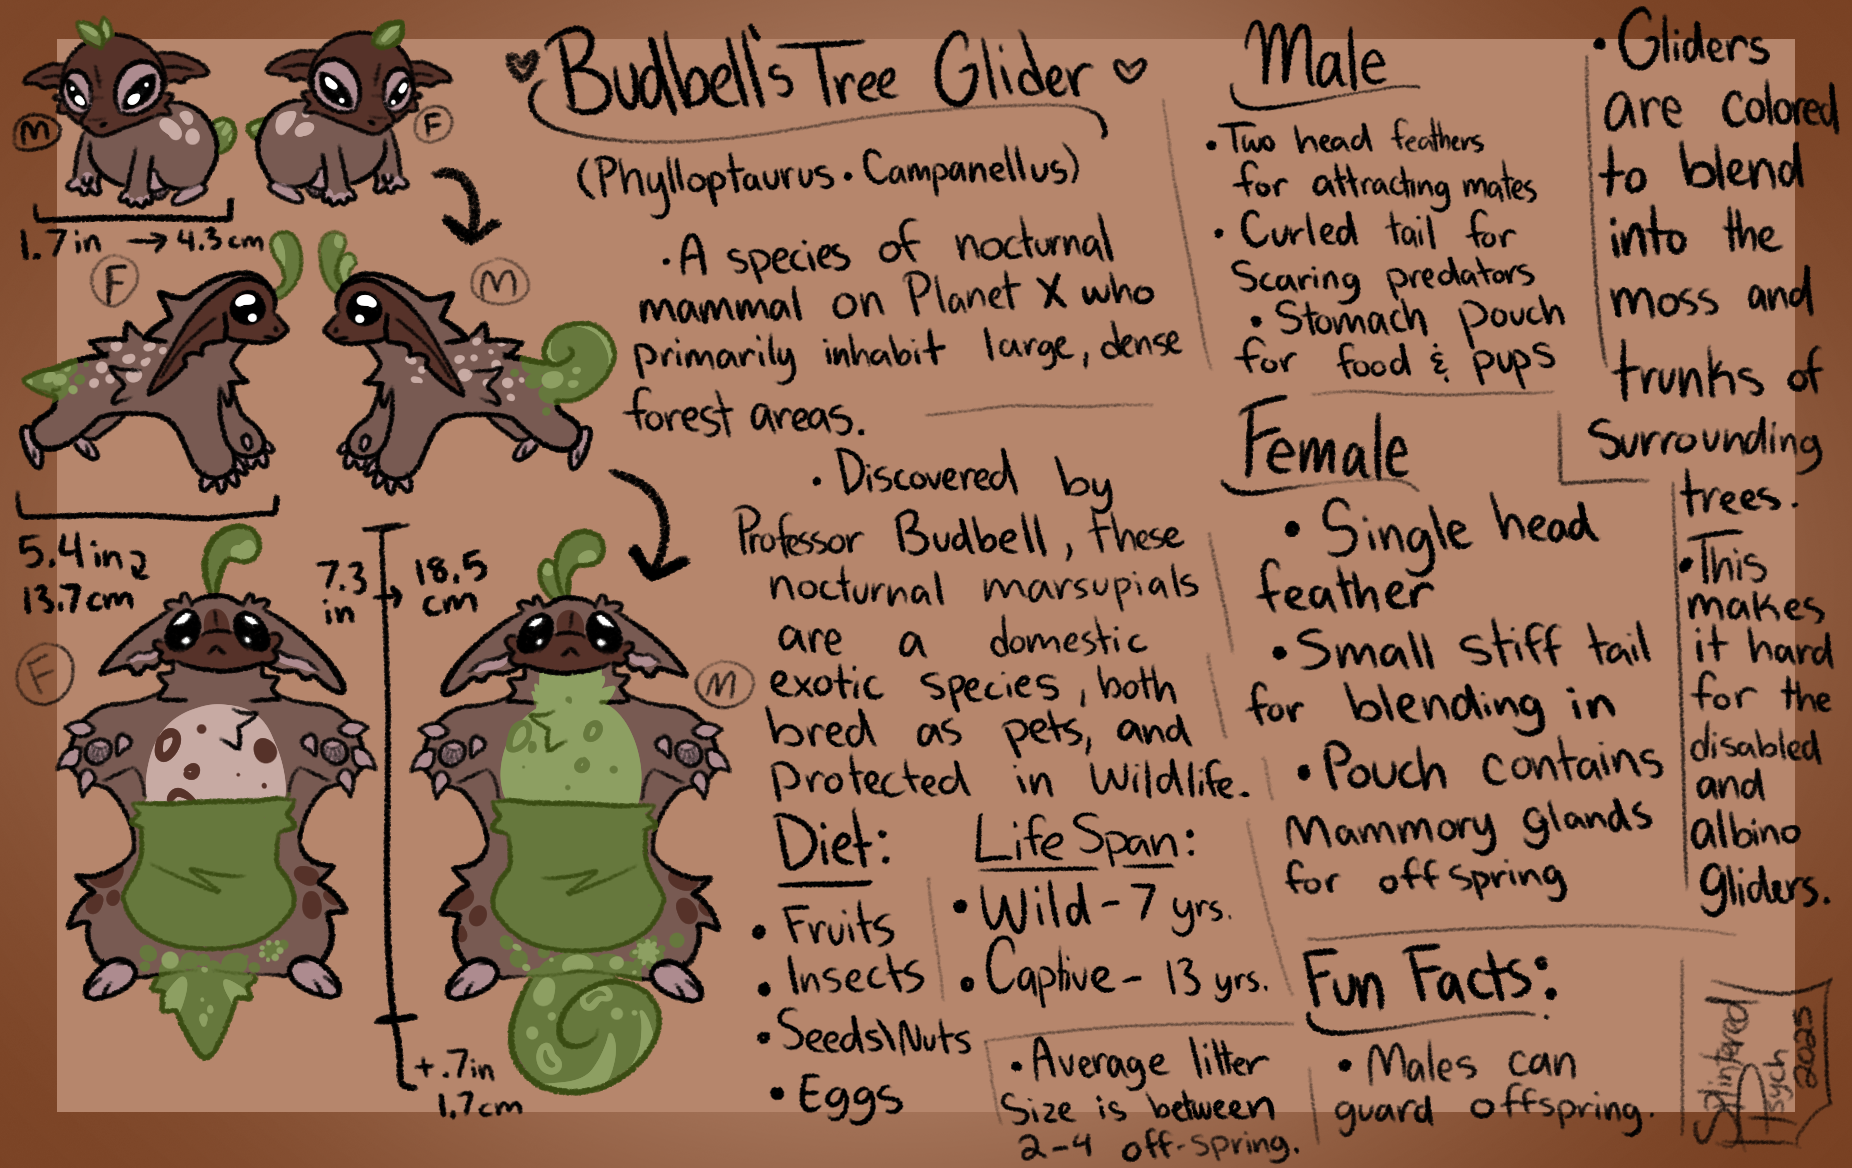 M
F
1.7in → 4.3cm
F
M
5.4in
13.7cm
7.3 → 18.5
in cm
F
M
+.7in
1.7cm
♥ Budbell's Tree Glider ♡
(Phylloptaurus • Campanellus)
• A species of nocturnal
mammal on Planet X who
primarily inhabit large, dense
forest areas.
• Discovered by
Professor Budbell, these
nocturnal marsupials
are a domestic
exotic species, both
bred as pets, and
protected in wildlife.
Diet:
• Fruits
• Insects
• Seeds\Nuts
• Eggs
Life Span:
• Wild - 7 yrs.
• Captive - 13 yrs.
• Average litter
Size is between
2-4 off-spring.
Male
• Two head feathers
for attracting mates
• Curled tail for
Scaring predators
• Stomach pouch
for food & pups
Female
• Single head
feather
• Small stiff tail
for blending in
• Pouch contains
Mammory glands
for offspring
Fun Facts:
• Males can
guard offspring.
• Gliders
are colored
to blend
into the
moss and
trunks of
Surrounding
trees.
• This
makes
it hard
for the
disabled
and
albino
gliders.
Splintered
Psych
2025